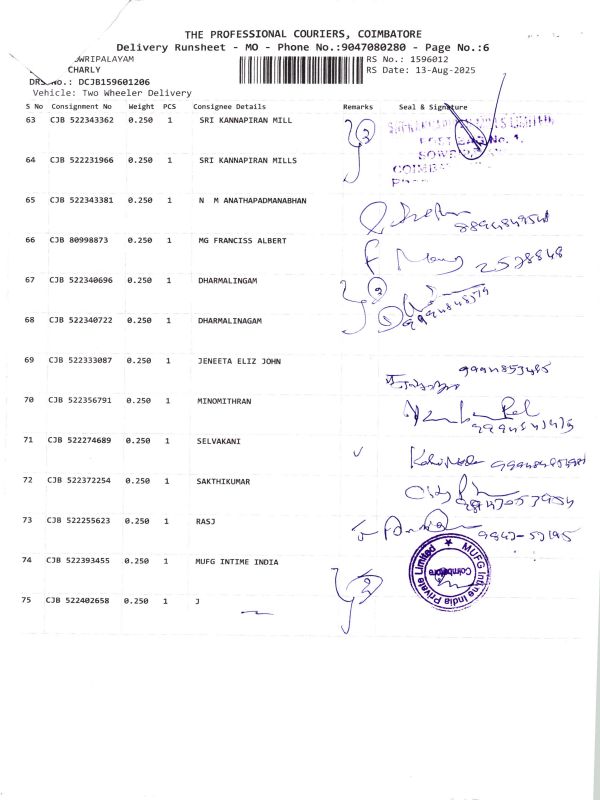 THE PROFESSIONAL COURIERS, COIMBATORE
Delivery Runsheet - MO - Phone No.:9047080280 - Page No.:6
OWRIPALAYAM RS No.: 1596012
CHARLY RS Date: 13-Aug-2025
DRS No.: DCJB159601206
Vehicle: Two Wheeler Delivery
S No Consignment No Weight PCS Consignee Details Remarks Seal & Signature
63 CJB 522343362 0.250 1 SRI KANNAPIRAN MILL
64 CJB 522231966 0.250 1 SRI KANNAPIRAN MILLS
65 CJB 522343381 0.250 1 N M ANATHAPADMANABHAN
66 CJB 80998873 0.250 1 MG FRANCISS ALBERT 2528848
67 CJB 522340696 0.250 1 DHARMALINGAM
68 CJB 522340722 0.250 1 DHARMALINAGAM
69 CJB 522333087 0.250 1 JENEETA ELIZ JOHN
70 CJB 522356791 0.250 1 MINOMITHRAN
71 CJB 522274689 0.250 1 SELVAKANI
72 CJB 522372254 0.250 1 SAKTHIKUMAR
73 CJB 522255623 0.250 1 RASJ
74 CJB 522393455 0.250 1 MUFG INTIME INDIA
MUFG Intime India Private Limited
Coimbatore
75 CJB 522402658 0.250 1 J